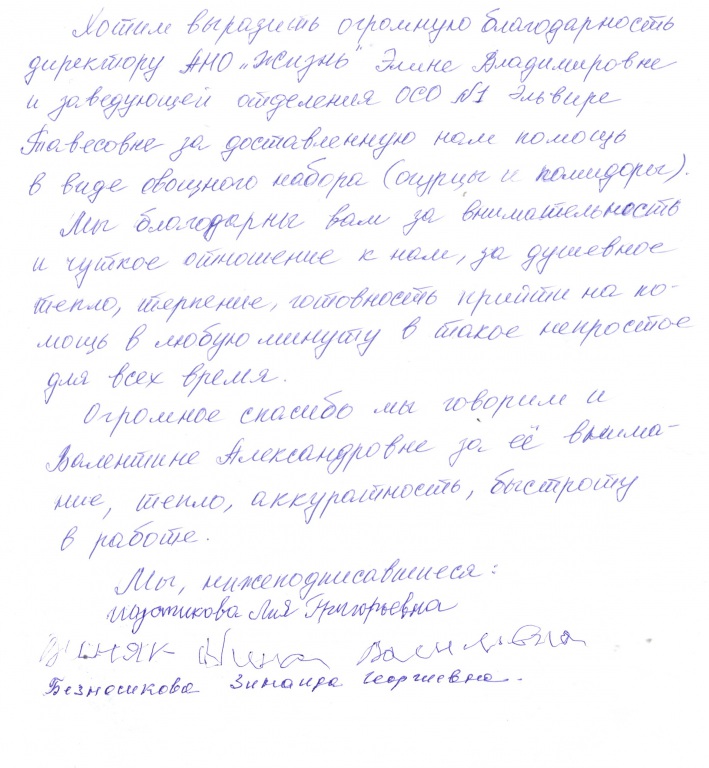 Хотим выразить огромную благодарность
директору АНО „Жизнь" Элине Владимировне
и заведующей отделения ОСО №1 Эльвире
Тавесовне за доставленную нам помощь
в виде овощного набора (огурцы и помидоры).
Мы благодарны вам за внимательность
и чуткое отношение к нам, за душевное
тепло, терпение, готовность прийти на по-
мощь в любую минуту в такое непростое
для всех время.
Огромное спасибо мы говорим и
Валентине Александровне за её внима-
ние, тепло, аккуратность, быстроту
в работе.
Мы, нижеподписавшиеся:
Лия Григорьевна
Нина Васильевна
Безносикова Зинаида Георгиевна.